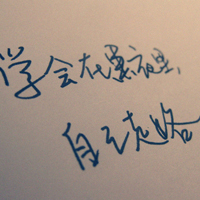 学会在黑夜里,
自己走路